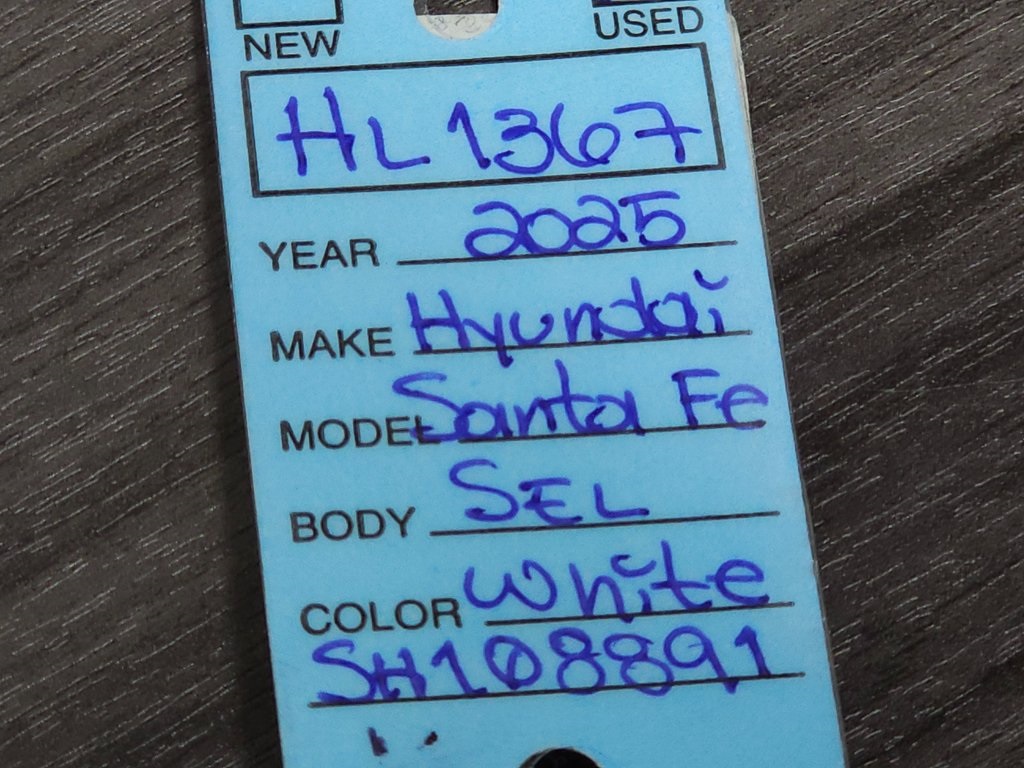 NEW USED
HL 1367
YEAR 2025
MAKE Hyundai
MODEL Santa Fe
BODY SEL
COLOR White
SH108891